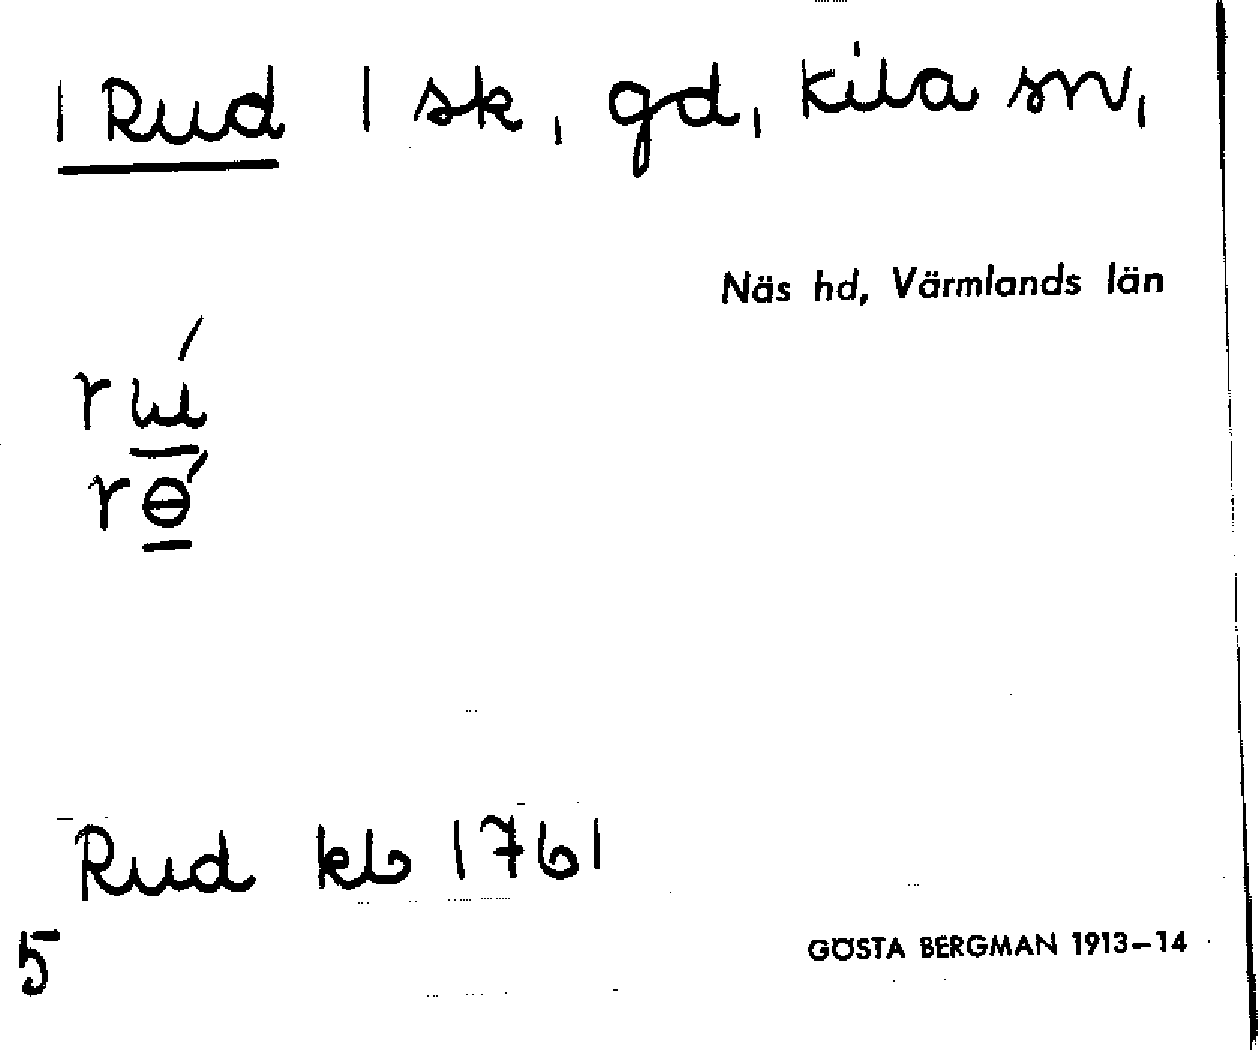 1 Rud 1 sk, gd, Kila sn,
Näs hd, Värmlands län
Rud kb 1761
5
GÖSTA BERGMAN 1913–14